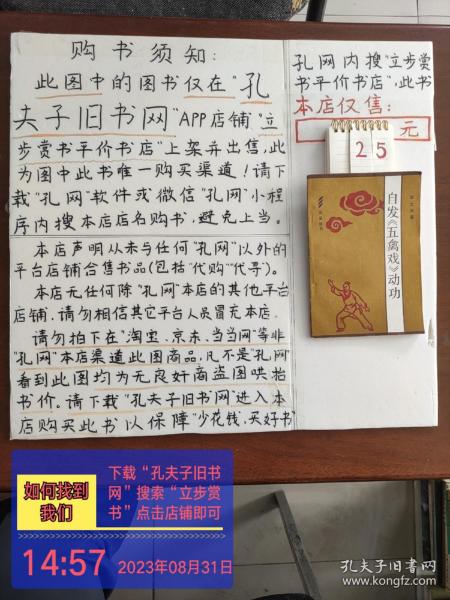 购书须知：
此图中的图书仅在“孔
夫子旧书网”APP店铺“立
步赏书平价书店”上架并出售，此
为图中此书唯一购买渠道！请下
载“孔网”软件或微信“孔网”小程
序内搜本店店名购书，避免上当。
本店声明从未与任何“孔网”以外的
平台店铺合售书品（包括“代购”“代寻）。
本店无任何除“孔网”本店的其他平台
店铺，请勿相信其它平台人员冒充本店。
请勿拍下在“淘宝、京东、当当网”等非
“孔网”本店渠道此图商品，凡不是“孔网”
看到此图均为无良奸商盗图哄抬
书价。请下载“孔夫子旧书网”进入本
店购买此书以保障“少花钱、买好书”
孔网内搜“立步赏
书平价书店”，此书
本店仅售：
元
25
自发《五禽戏》动功
如何找到
我们
下载“孔夫子旧书
网”搜索“立步赏
书”点击店铺即可
14:57
2023年08月31日
孔夫子旧书网
www.kongfz.com